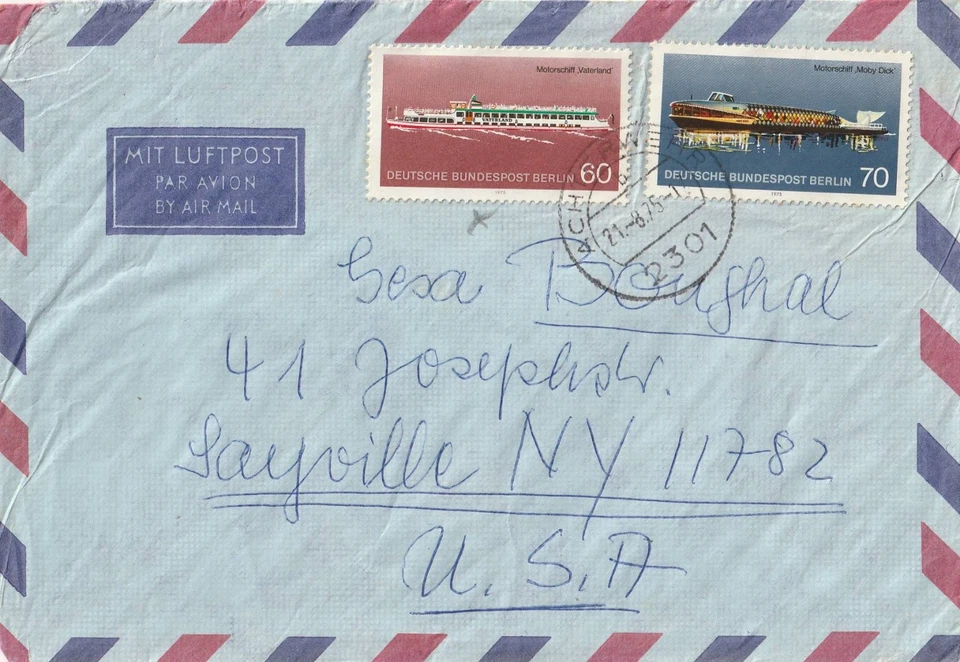 Motorschiff „Vaterland"
VATERLAND
DEUTSCHE BUNDESPOST BERLIN 60
1975
Motorschiff „Moby Dick"
DEUTSCHE BUNDESPOST BERLIN 70
1975
MIT LUFTPOST
PAR AVION
BY AIR MAIL
21.-8.75-1
2301
Gesa Boughal
41 Josephstr.
Sayville NY 11782
U.S.A